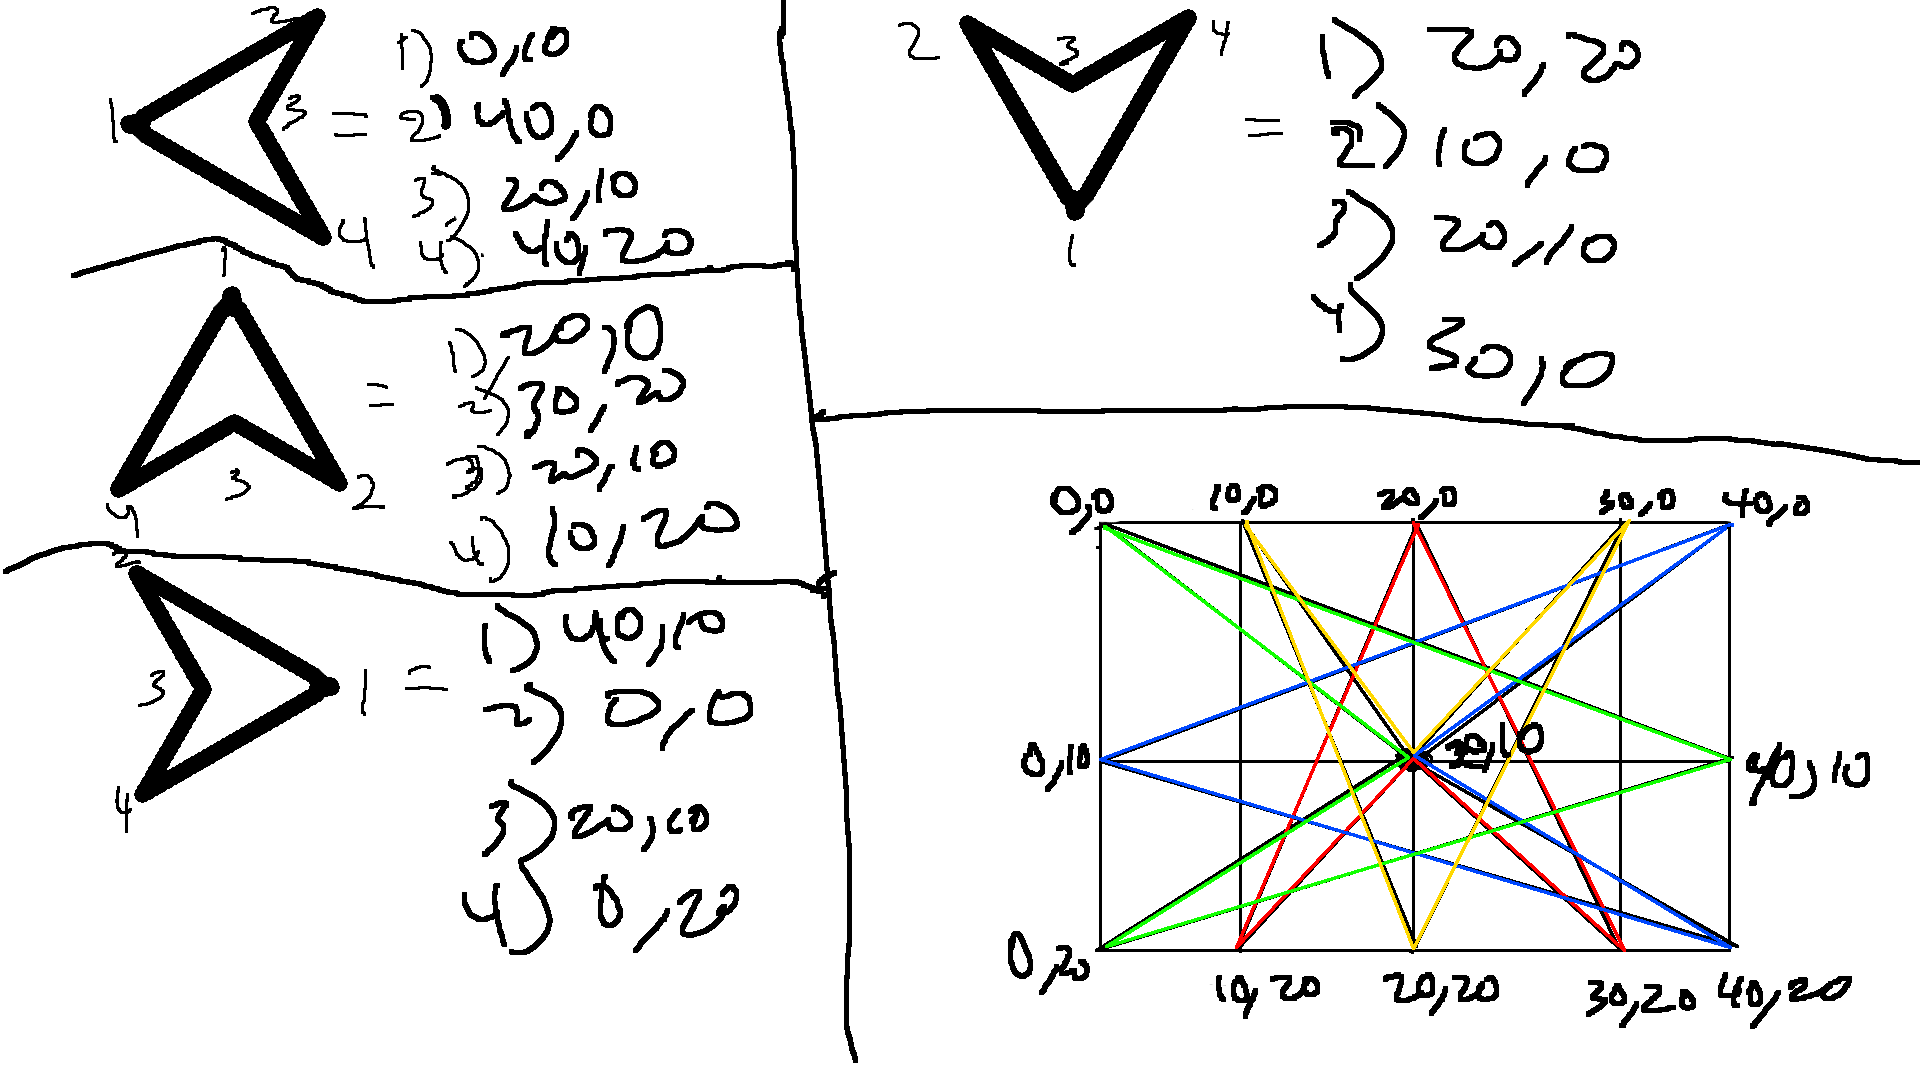 2
1
3
4
=
1) 0,10
2) 40,0
3) 20,10
4) 40,20
1
4
3
2
=
1) 20,0
2) 30,20
3) 20,10
4) 10,20
2
3
1
4
=
1) 40,10
2) 0,0
3) 20,10
4) 0,20
2
3
4
1
=
1) 20,20
2) 10,0
3) 20,10
4) 30,0
0,0 10,0 20,0 30,0 40,0
0,10 40,10
0,20 10,20 20,20 30,20 40,20